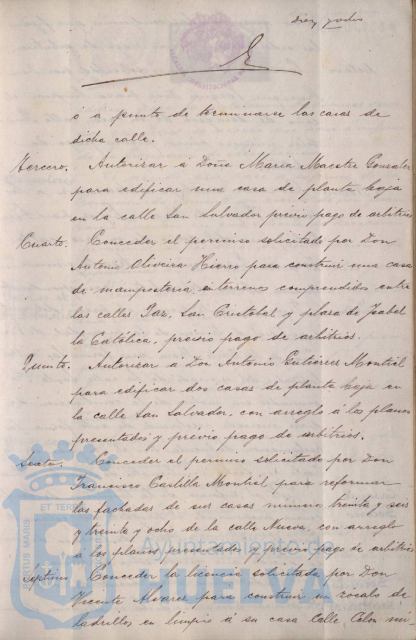 diez y ocho
ó á punto de terminarse las casas de
dicha calle.
Tercero. Autorizar á Doña María Maestre González
para edificar una casa de planta baja
en la calle San Salvador previo pago de arbitrios
Cuarto. Conceder el permiso solicitado por Don
Antonio Oliveira Hierro para construir una casa
de mampostería, en terreno comprendidos entre
las calles Paz, San Cristobal y plaza de Isabel
la Católica, previo pago de arbitrios.
Quinto. Autorizar á Don Antonio Gutiérrez Montiel
para edificar dos casas de planta baja en
la calle San Salvador, con arreglo á los planos
presentados y previo pago de arbitrios.
Sexto. Conceder el permiso solicitado por Don
Francisco Castilla Montiel para reformar
las fachadas de sus casas número treinta y seis
y treinta y ocho de la calle Nueva, con arreglo
á los planos presentados y previo pago de arbitrios
Séptimo. Conceder la licencia solicitada por Don
Vicente Alvarez para construir un zócalo de
ladrillos en limpio á su casa Calle Colon nú-
PORTUS MARIS ET TERRAE
Ayuntamiento de
HUELVA